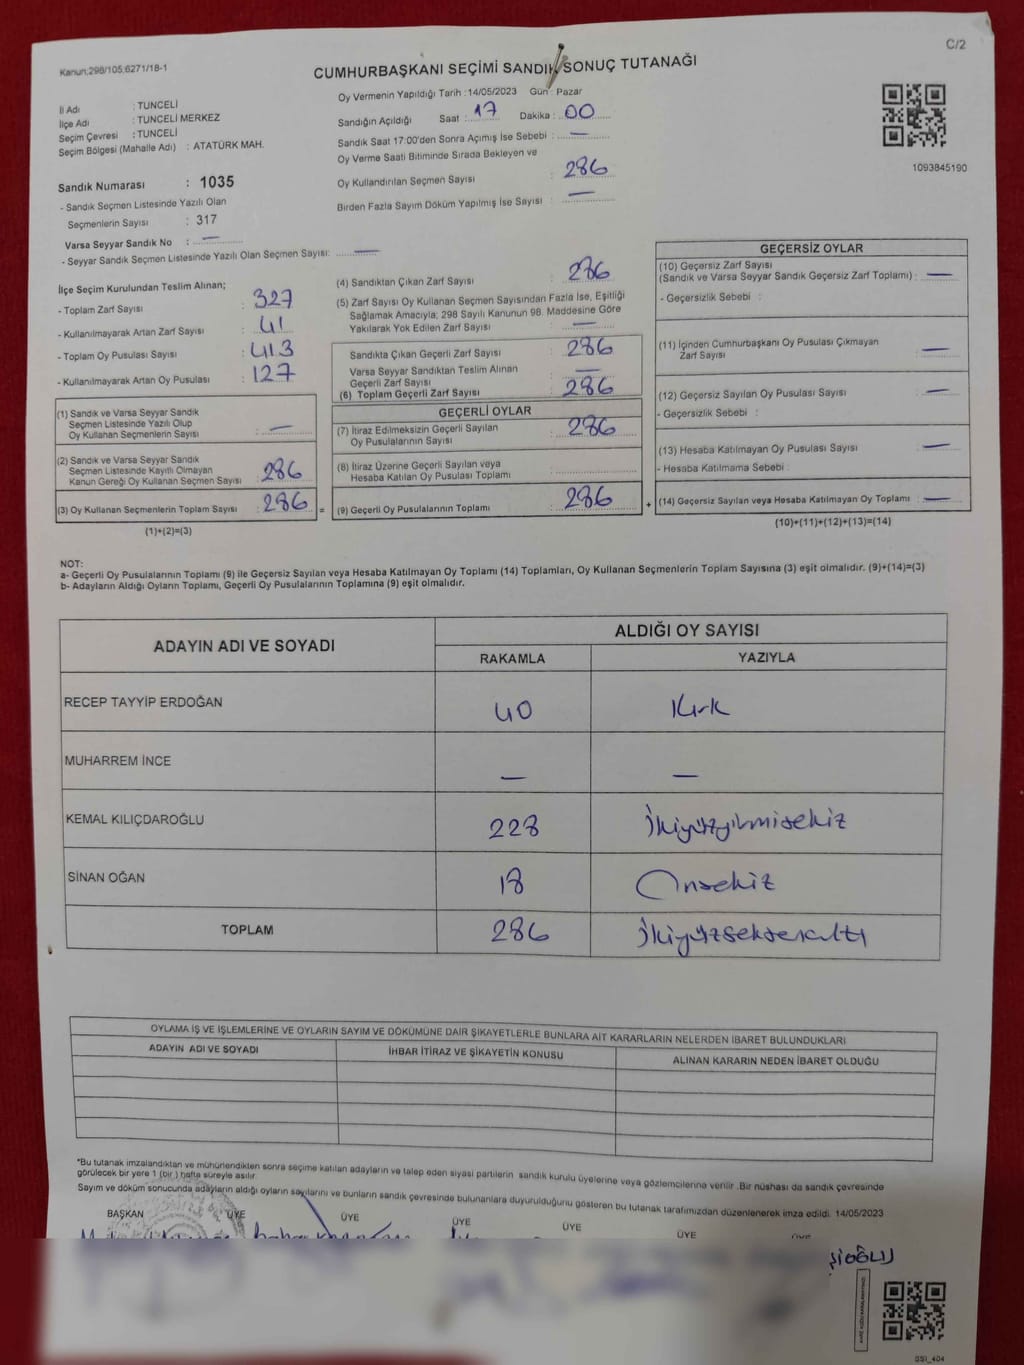 C/2
Kanun;298/105;6271/18-1
CUMHURBAŞKANI SEÇİMİ SANDIK SONUÇ TUTANAĞI
İl Adı : TUNCELİ
İlçe Adı : TUNCELİ MERKEZ
Seçim Çevresi : TUNCELİ
Seçim Bölgesi (Mahalle Adı) : ATATÜRK MAH.
Oy Vermenin Yapıldığı Tarih :14/05/2023 Gün : Pazar
Sandığın Açıldığı Saat : 17 Dakika : 00
Sandık Saat 17:00'den Sonra Açımış İse Sebebi : —
Oy Verme Saati Bitiminde Sırada Bekleyen ve
Oy Kullandırılan Seçmen Sayısı : 286
Birden Fazla Sayım Döküm Yapılmış İse Sayısı : —
1093845190
Sandık Numarası : 1035
- Sandık Seçmen Listesinde Yazılı Olan
Seçmenlerin Sayısı : 317
Varsa Seyyar Sandık No : —
- Seyyar Sandık Seçmen Listesinde Yazılı Olan Seçmen Sayısı: —
İlçe Seçim Kurulundan Teslim Alınan;
- Toplam Zarf Sayısı : 327
- Kullanılmayarak Artan Zarf Sayısı : 41
- Toplam Oy Pusulası Sayısı : 413
- Kullanılmayarak Artan Oy Pusulası : 127
(1) Sandık ve Varsa Seyyar Sandık
Seçmen Listesinde Yazılı Olup
Oy Kullanan Seçmenlerin Sayısı : —
(2) Sandık ve Varsa Seyyar Sandık
Seçmen Listesinde Kayıtlı Olmayan
Kanun Gereği Oy Kullanan Seçmen Sayısı : 286
(3) Oy Kullanan Seçmenlerin Toplam Sayısı : 286 =
(1)+(2)=(3)
(4) Sandıktan Çıkan Zarf Sayısı : 286
(5) Zarf Sayısı Oy Kullanan Seçmen Sayısından Fazla İse, Eşitliği
Sağlamak Amacıyla; 298 Sayılı Kanunun 98. Maddesine Göre
Yakılarak Yok Edilen Zarf Sayısı : —
Sandıkta Çıkan Geçerli Zarf Sayısı : 286
Varsa Seyyar Sandıktan Teslim Alınan
Geçerli Zarf Sayısı : —
(6) Toplam Geçerli Zarf Sayısı : 286
GEÇERLİ OYLAR
(7) İtiraz Edilmeksizin Geçerli Sayılan
Oy Pusulalarının Sayısı : 286
(8) İtiraz Üzerine Geçerli Sayılan veya
Hesaba Katılan Oy Pusulası Toplamı :
(9) Geçerli Oy Pusulalarının Toplamı : 286 +
GEÇERSİZ OYLAR
(10) Geçersiz Zarf Sayısı
(Sandık ve Varsa Seyyar Sandık Geçersiz Zarf Toplamı) : —
- Geçersizlik Sebebi :
(11) İçinden Cumhurbaşkanı Oy Pusulası Çıkmayan
Zarf Sayısı : —
(12) Geçersiz Sayılan Oy Pusulası Sayısı : —
- Geçersizlik Sebebi :
(13) Hesaba Katılmayan Oy Pusulası Sayısı : —
- Hesaba Katılmama Sebebi :
(14) Geçersiz Sayılan veya Hesaba Katılmayan Oy Toplamı : —
(10)+(11)+(12)+(13)=(14)
NOT:
a- Geçerli Oy Pusulalarının Toplamı (9) ile Geçersiz Sayılan veya Hesaba Katılmayan Oy Toplamı (14) Toplamları, Oy Kullanan Seçmenlerin Toplam Sayısına (3) eşit olmalıdır. (9)+(14)=(3)
b- Adayların Aldığı Oyların Toplamı, Geçerli Oy Pusulalarının Toplamına (9) eşit olmalıdır.
ADAYIN ADI VE SOYADI
ALDIĞI OY SAYISI
RAKAMLA YAZIYLA
RECEP TAYYİP ERDOĞAN 40 Kırk
MUHARREM İNCE — —
KEMAL KILIÇDAROĞLU 228 İkiyüzyirmisekiz
SİNAN OĞAN 18 Onsekiz
TOPLAM 286 İkiyüzseksenaltı
OYLAMA İŞ VE İŞLEMLERİNE VE OYLARIN SAYIM VE DÖKÜMÜNE DAİR ŞİKAYETLERLE BUNLARA AİT KARARLARIN NELERDEN İBARET BULUNDUKLARI
ADAYIN ADI VE SOYADI İHBAR İTİRAZ VE ŞİKAYETİN KONUSU ALINAN KARARIN NEDEN İBARET OLDUĞU
*Bu tutanak imzalandıktan ve mühürlendikten sonra seçime katılan adayların ve talep eden siyasi partilerin sandık kurulu üyelerine veya gözlemcilerine verilir .Bir nüshası da sandık çevresinde
görülecek bir yere 1 (bir ) hafta süreyle asılır.
Sayım ve döküm sonucunda adayların aldığı oyların sayılarını ve bunların sandık çevresinde bulunanlara duyurulduğunu gösteren bu tutanak tarafımızdan düzenlenerek imza edildi. 14/05/2023
BAŞKAN ÜYE ÜYE ÜYE ÜYE ÜYE ÜYE